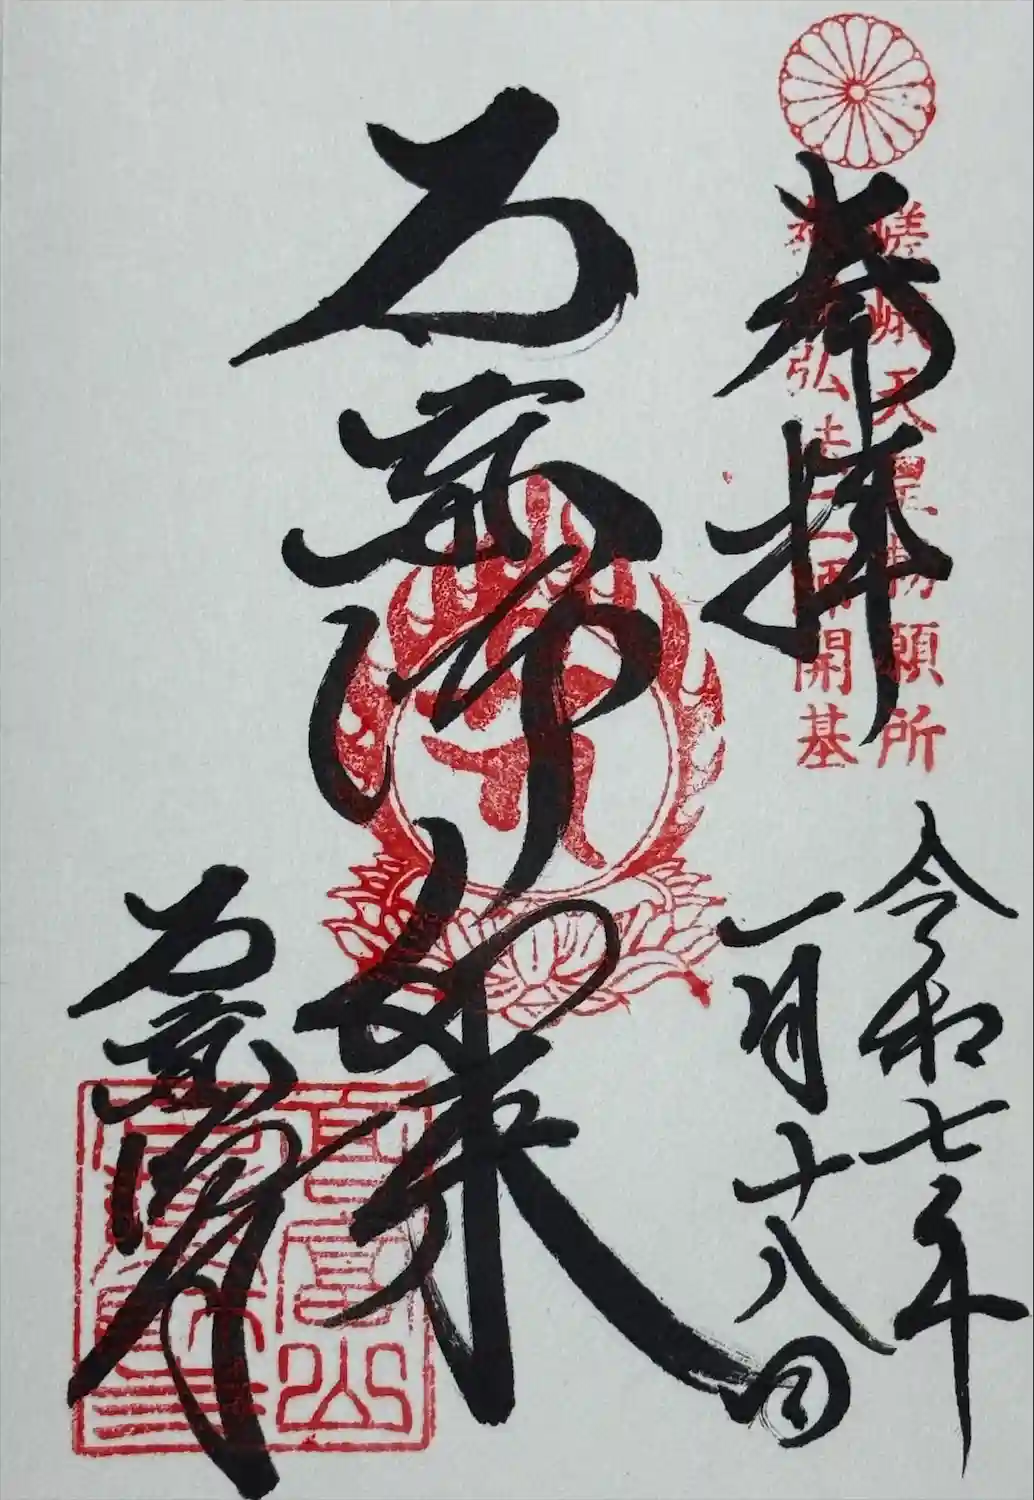 嵯峨天皇勅願所
泰澄弘法二師開基
奉拝
令和七年
一月十八日
石薬師如来
石薬師寺
高富山